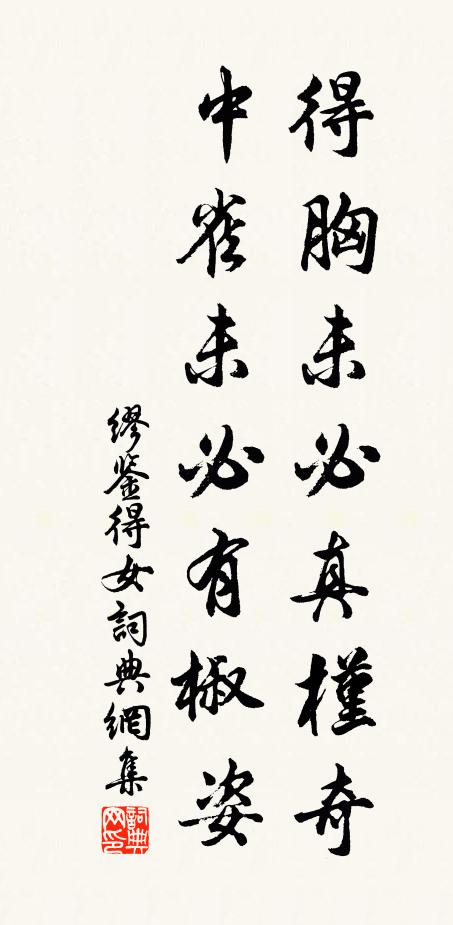 得胸未必真槿奇
中雀未必有椒姿
繆鉴得女詞典網集
詞典网印